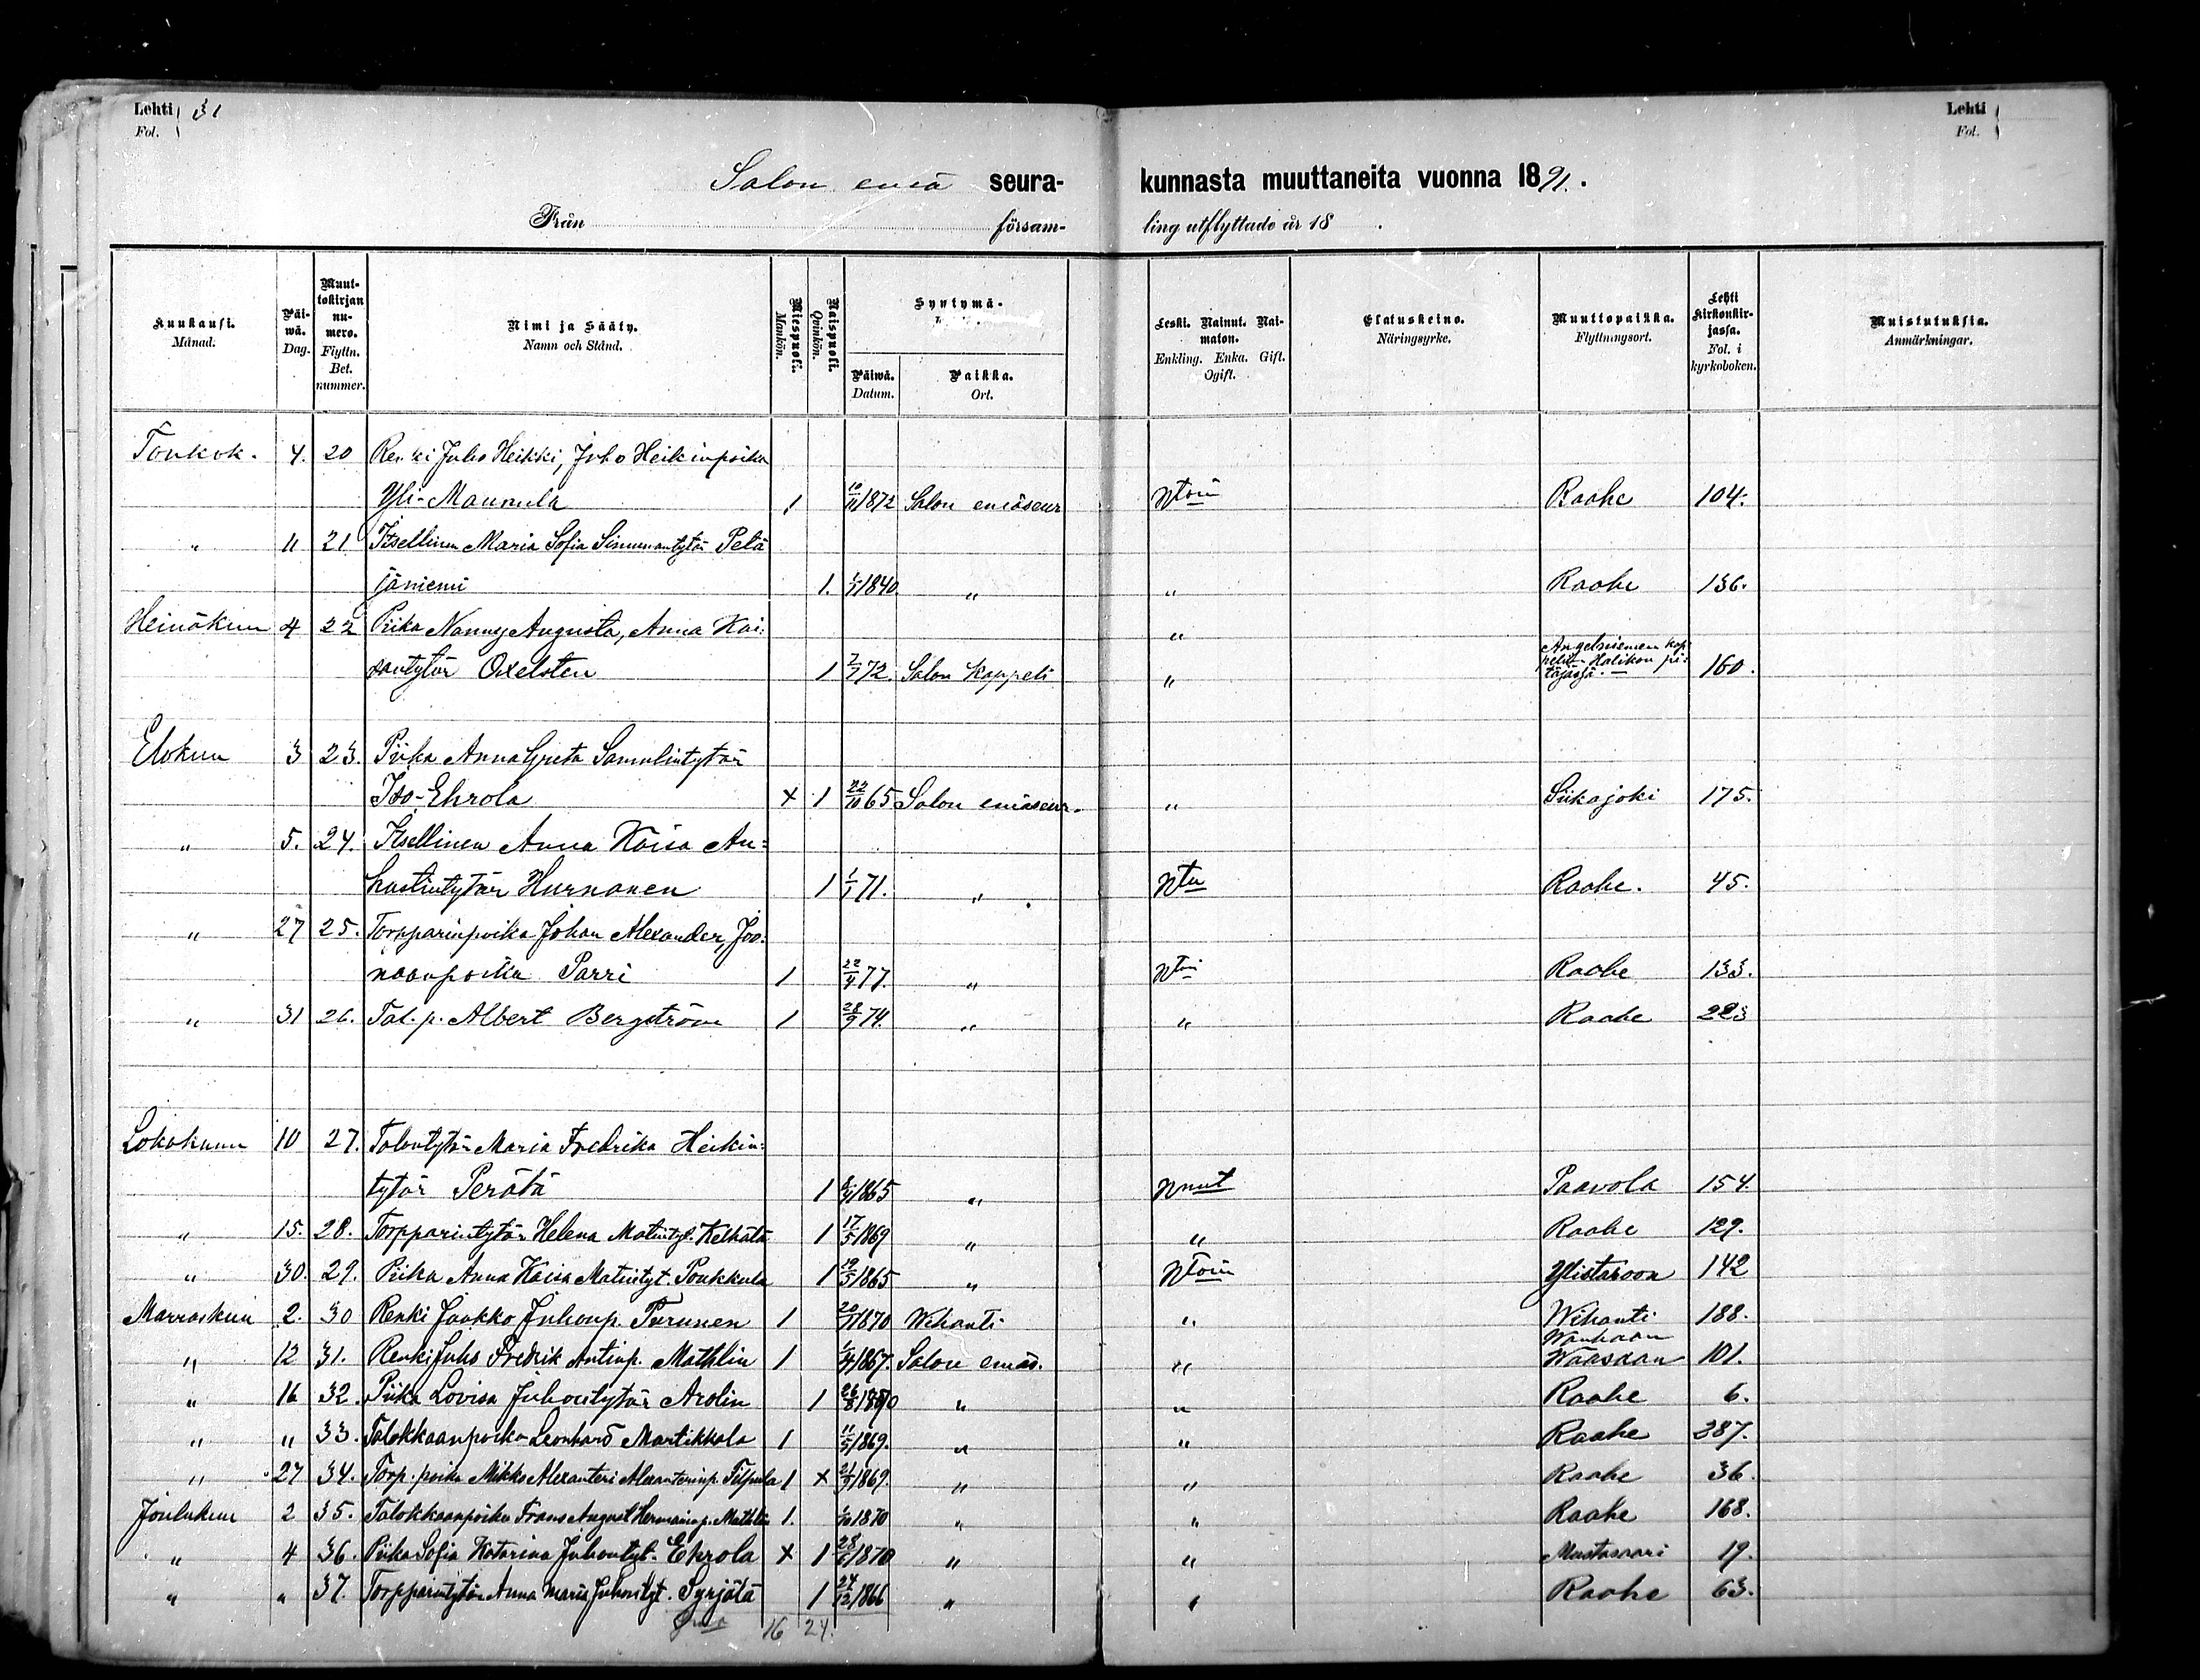 Lehti 31
Fol.
Lehti
Fol.
Salon emä seura- kunnasta muuttaneita vuonna 1891.
Från försam- ling utflyttade år 18 .
Kuukausi. Månad.
Päiwä. Dag.
Muuttokirjan numero. Flyttn. Bet. nummer.
Nimi ja Sääty. Namn och Stånd.
Miespuoli. Mankön.
Naispuoli. Qvinkön.
Syntymä-
Päiwä. Datum.
Paikka. Ort.
Leski. Nainut. Naimaton. Enkling. Enka. Gift. Ogift.
Elatuskeino. Näringsyrke.
Muuttopaikka. Flyttningsort.
Lehti kirkonkirjassa. Fol. i kyrkoboken.
Muistutuksia. Anmärkningar.
Toukok. 4. 20 Renki Juho Heikki, Juho Heikinpoika
Yli-Maunula 1 10/11 1872 Salon emäseur Ntoin Raahe 104.
" 11 21 Itsellinen Maria Sofia Simunantytär Petä
jäniemi 1. 1840 " " Raahe 136.
Heinäkuu 4 22 Piika Nanny Augusta, Anna Kai: "
santytär Oxelsten 1 72. Salon Kappeli " Angelniemen kappeli Halikon pitäjässä. 160.
Elokuu 3 23. Piika Anna Greta Samulintytär
Iso-Ehrola X 1 22/10 65 Salon emäseur. " Siikajoki 175.
" 5. 24. Itsellinen Anna Kaisa Au=
kustintytär Hurnanen 1 1/1 71. " Ntu Raahe. 45.
" 27 25. Torpparinpoika Johan Alexander, Joo:
naanpoika Parri 1 22/4 77. " Ntoi Raahe 133.
" 31 26. Tal. p. Albert Bergström 1 28/9 74. " " Raahe 223
Lokakuun 10 27. Talontytär Maria Fredrika Heikin:
tytär Perätä 1 1865 " Nnut Paavola 154.
" 15. 28. Torpparintytär Helena Matintyt. Keltälä 1 17/5 1869 " " Raahe 129.
" 30. 29. Piika Anna Kaisa Matintyt. Poukkula 1 19/5 1865 " Ntoin Ylistaroon 142
Marraskuu 2. 30 Renki Jaakko Juhonp. Turunen 1 1870 Wihanti " Wihanti 188.
" 12 31. Renki Juho Fredrik Antinp. Mathlin 1 1867. Salon emäs. " Wanhaan Waasaan 101.
" 16 32. Piika Lovisa Juhontytär Arolin 1 26/8 1870 " " Raahe 6.
" " 33. Talokkaanpoika Leonhard Martikkala 1 11/5 1869. " " Raahe 287.
" 27 34. Torp. poika Mikko Alexanteri Alexanterinp. Filpula 1 X 21/9 1869. " " Raahe 36.
Joulukuu 2 35. Talokkaanpoika Frans August Hermaninp. Mathlin 1. 1870 " " Raahe 168.
" 4 36. Piika Sofia Katarina Juhontyt. Ehrola X 1 28/ 1870 " " Mustasaari 19.
" " 37. Torpparintytär Anna Maria Juhontyt. Syrjätä 1 24/12 1866 " " Raahe 63.
16 24.